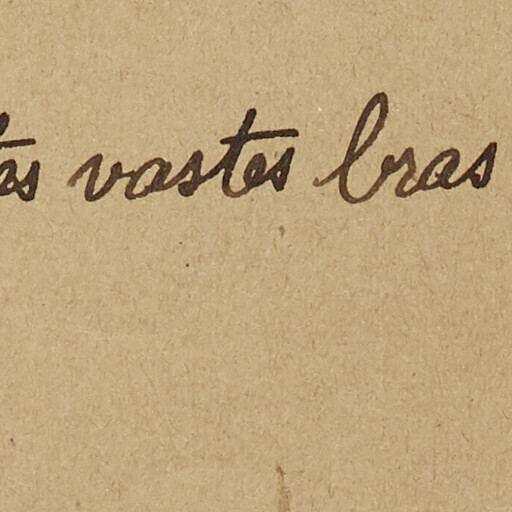 tes vastes bras